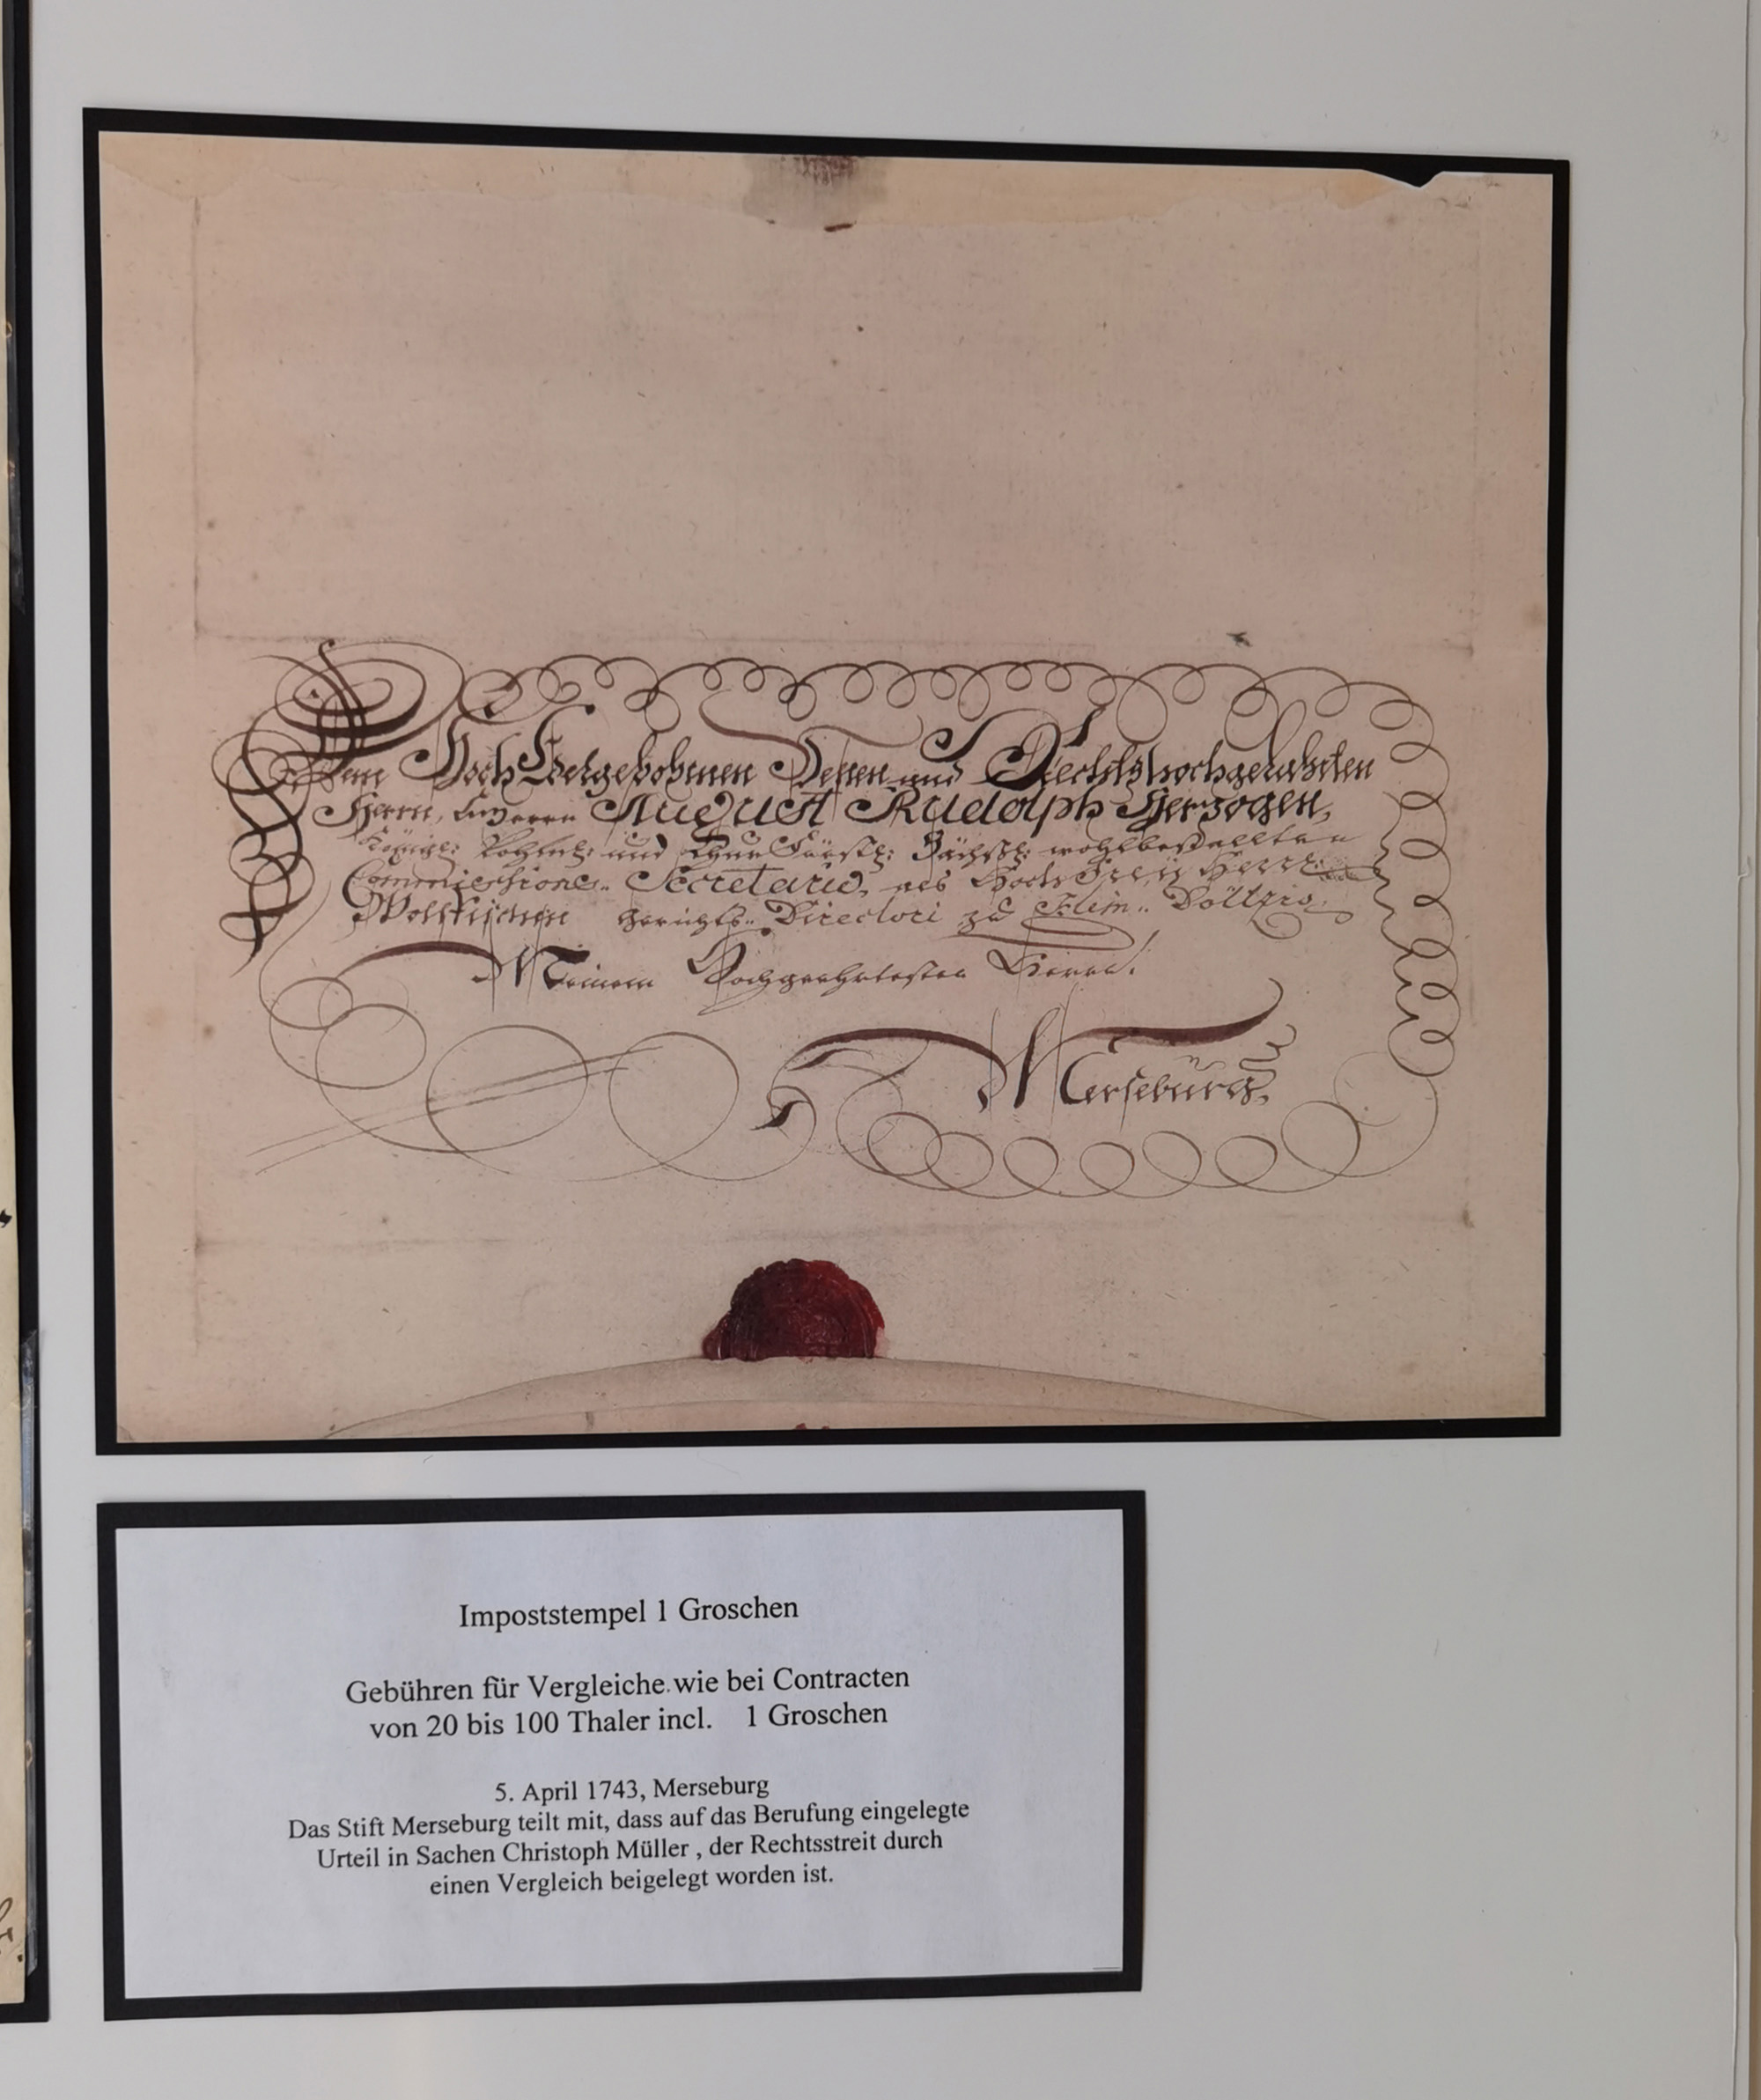 Dem HochEdelgebohrnen Vesten und Rechtshochgelahrten
Herrn, Herrn August Rudolph Herzogen,
Königl: Pohln: und ChurFürstl: Sächßl: wohlbestallten
Commissions- Secretario, des HochFreyHerrl.
gerichts- Directori zu Klein- Döltzig,
Meinem Hochgeehrtesten Herrn.
Merseburg.
Impoststempel 1 Groschen
Gebühren für Vergleiche wie bei Contracten
von 20 bis 100 Thaler incl. 1 Groschen
5. April 1743, Merseburg
Das Stift Merseburg teilt mit, dass auf das Berufung eingelegte
Urteil in Sachen Christoph Müller , der Rechtsstreit durch
einen Vergleich beigelegt worden ist.